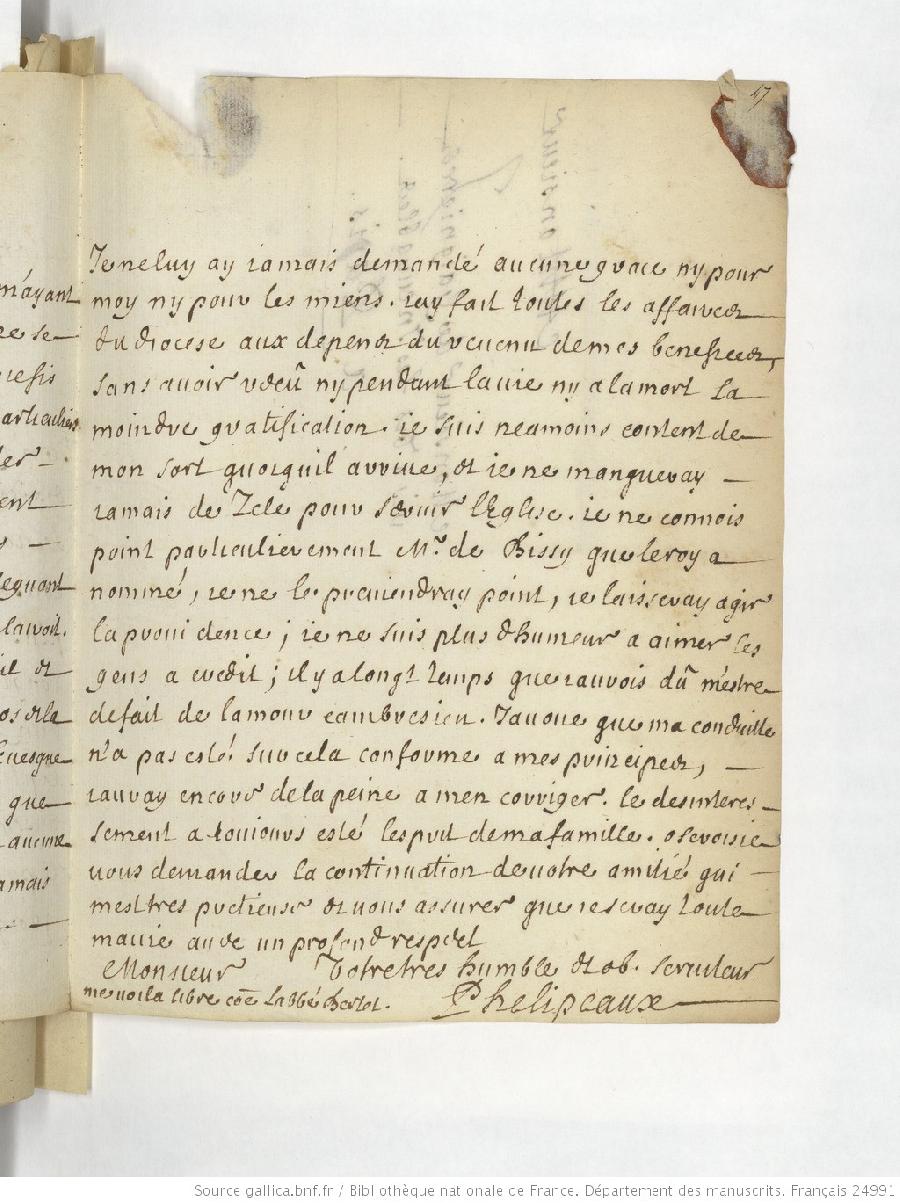 47
Je ne luy ay iamais demandé aucune grace ny pour
moy ny pour les miens. iay fait toutes les affaires
du diocese aux depens du revenu de mes benefices,
sans avoir receû ny pendant la vie ny a la mort la
moindre gratification. ie suis neamoins content de
mon sort quoiquil arrive, et ie ne manqueray
iamais de Zele pour servir l'Eglise. ie ne connois
point particulierement Mr. de Bissy que le roy a
nommé, ie ne le previendray point, ie laisseray agir
la providence; ie ne suis plus dhumeur a aimer les
gens a credit; il y a longt temps que iaurois dû mestre
defait de lamour cambresien. Javoue que ma conduitte
n'a pas esté sur cela conforme a mes principes,
iauray encore de la peine a men corriger. le desinteres-
sement a toujours esté lesprit de ma famille. oserois ie
vous demander la continuation de votre amitié qui
mest tres pretieuse et vous assurer que ie seray toute
ma vie avec un profond respect
Monsieur Votre tres humble et ob. serviteur
me voila libre coe Labbé
Phelipeaux
mayant
re se-
articuliers
ent
que
aucune
amais
Source gallica.bnf.fr / Bibliothèque nationale de France. Département des manuscrits. Français 24991